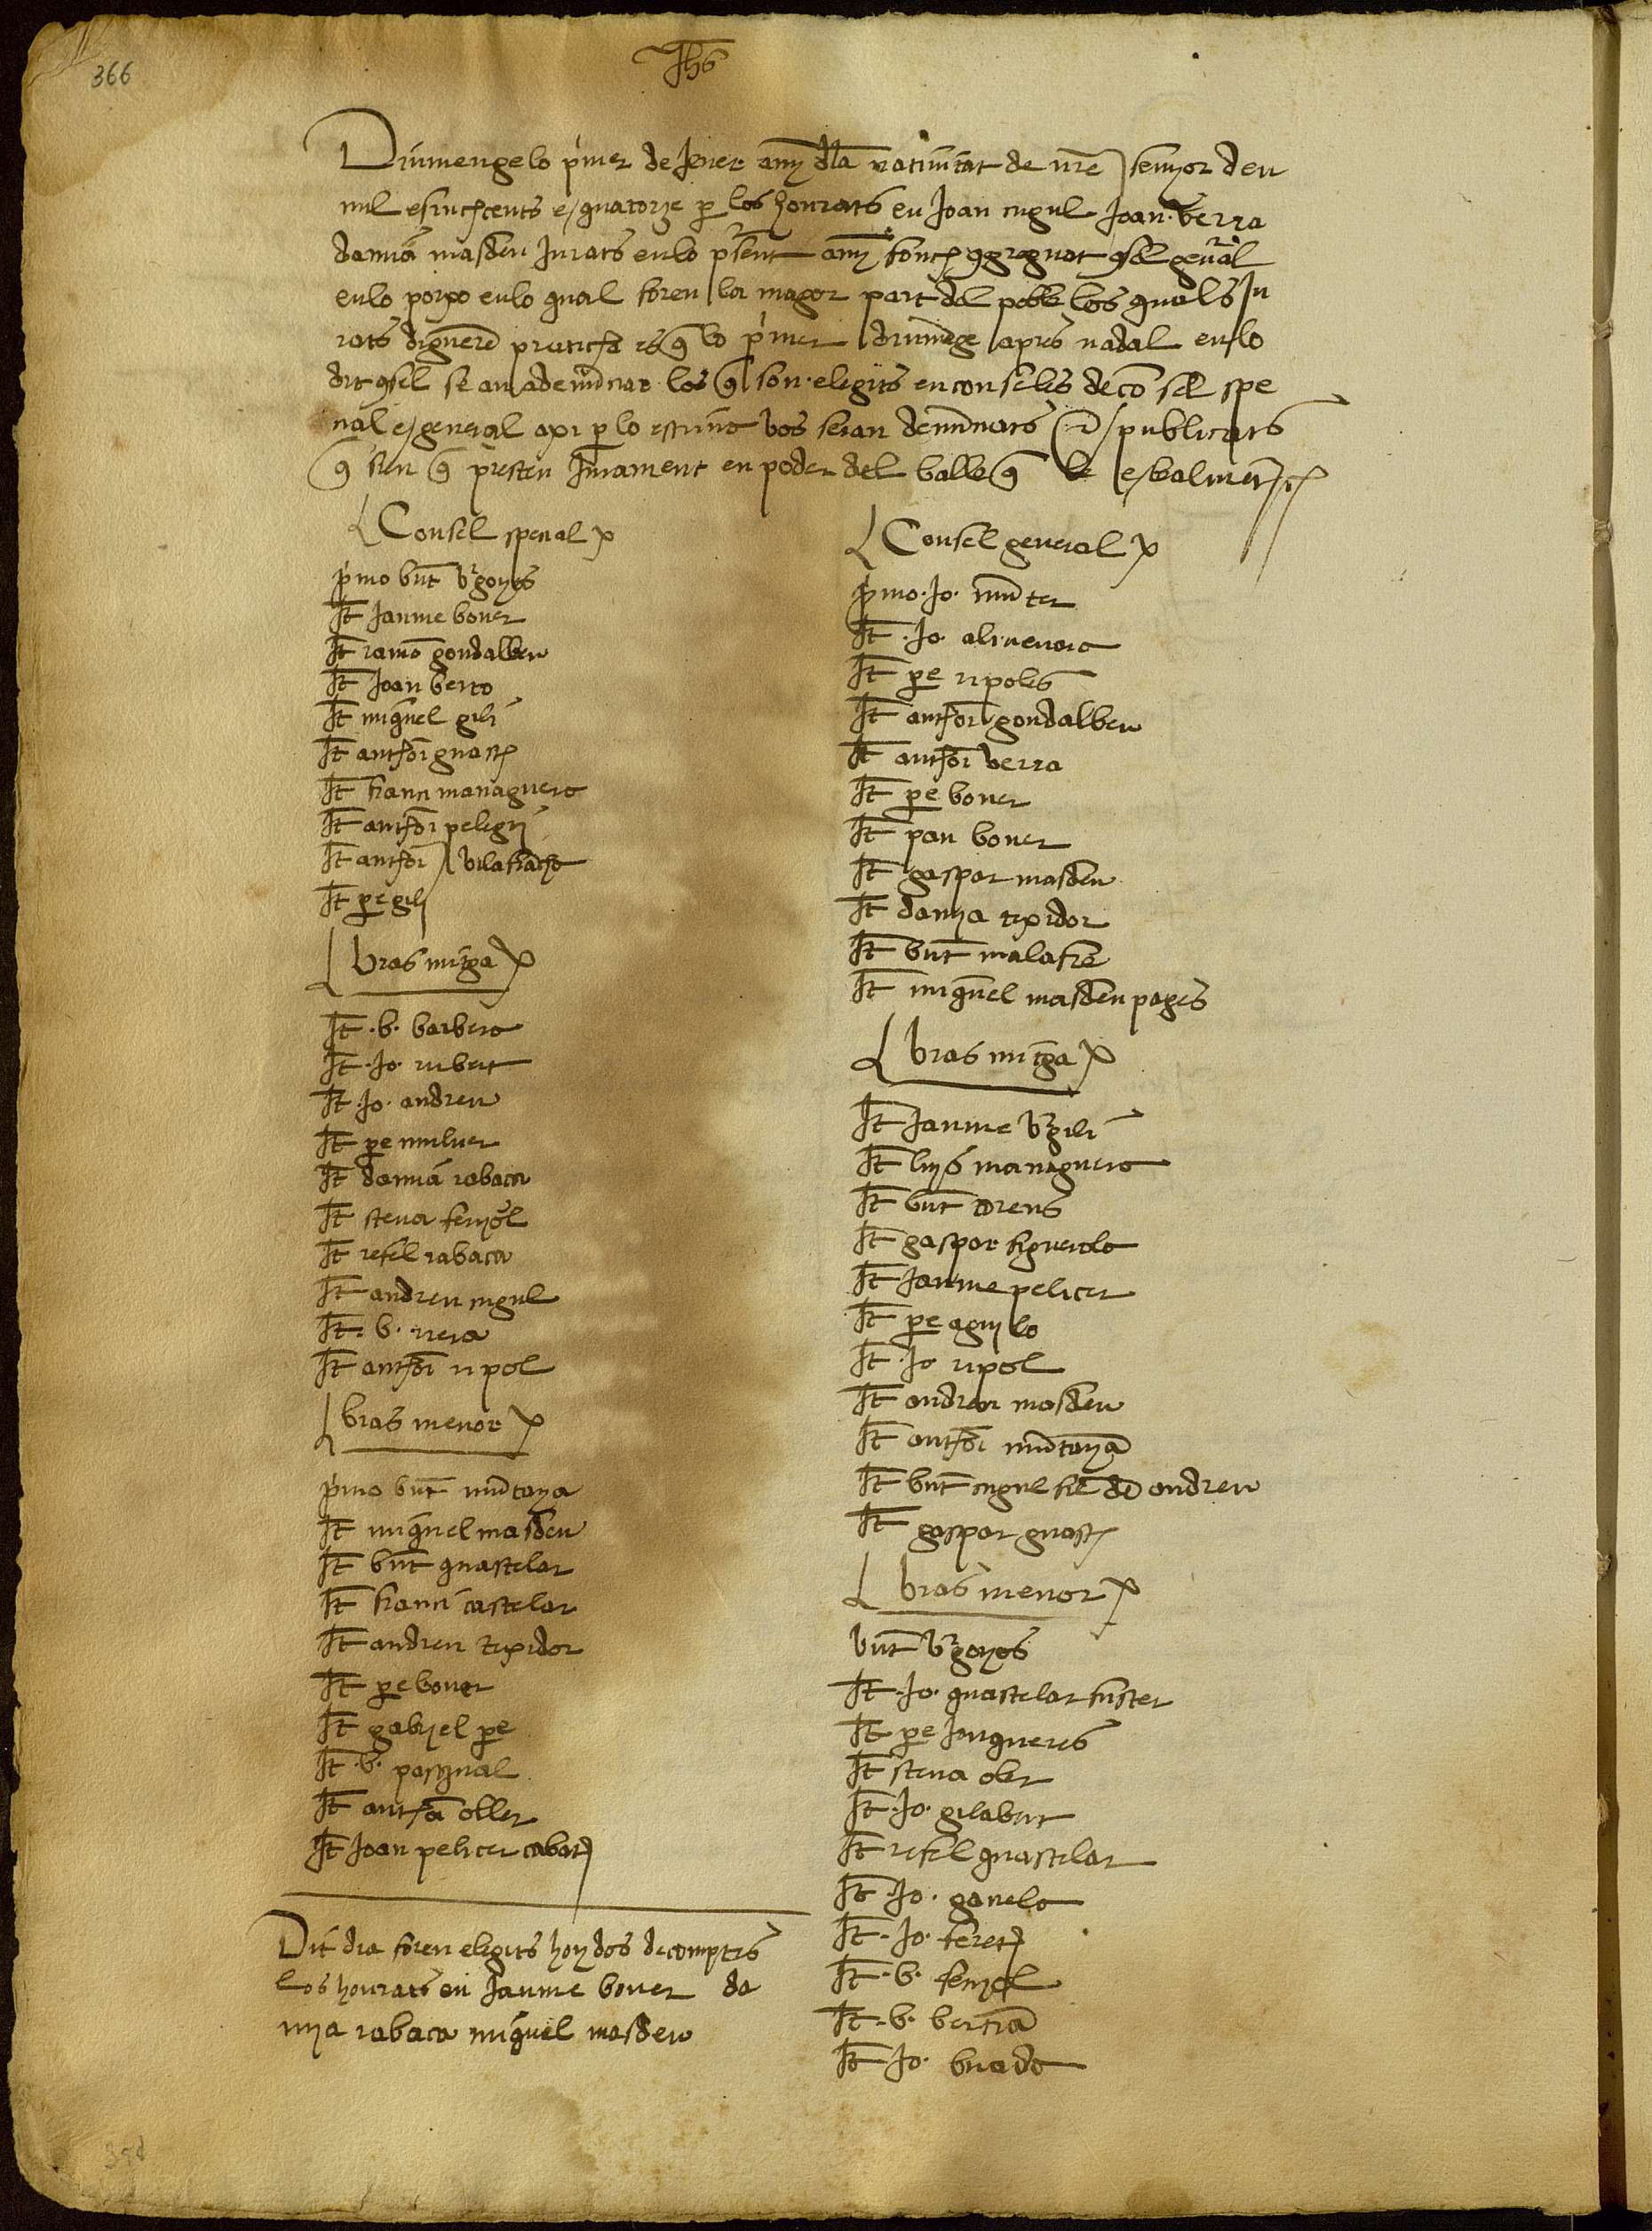 366
Jhs
Diumenge lo pmer de Jener any dla nativitat de nre senyor deu
mil e sinchcents e quatorze p los honrats en Joan cugul Joan verra
damia masdeu Jurats en lo psent any fonch 9gregat 9sel general
en lo porxo en lo qual foren la major part del poble los quals Ju
rats digueren praticha es q lo pmer diumege apres nadal en lo
dit 9sel se an a denuciar los q son elegits en consellers de cosel spe
cial e general axi p lo escriva vos seran denuciats e publicats
q sien q presten Jurament en poder del balle q
Consel special
pmo bnt vrgonyos
It Jaume bover
It ramo gondalbeu
It Joan berto
It miquel gili
It anthoi guasch
It franci managuera
It anthoi pelegri
It anthoi vilafracha
It pe gili
bras mitga
It .b. barbera
It .Jo. rubert
It .Jo. andreu
It pe muluer
It damia rabaca
It steva fenyol
It refel rabaca
It andreu cugul
It .b. riera
It anthoi ripol
bras menor
pmo bnt mutanya
It miquel masdeu
It bnt guastelar
It franci castelar
It andreu texidor
It pe bover
It gabriel pe
It .b. pasqual
It anthoi oller
It Joan pelicer
Dit dia foren elegits hoydos de comptes
los honrats en Jaume bover da
mya rabaca miquel masdeu
Consel general
pmo .Jo. muter
It .Jo. alimenara
It pe ripoles
It anthoi gondalbeu
It anthoi verra
It pe bover
It pau bover
It gaspar masdeu
It damya texidor
It bnt malafre
It miquel masdeu pages
bras mitga
It Jaume vrgili
It luys managuera
It bnt orens
It gaspar figuerola
It Jaume pelicer
It pe aguilo
It .Jo ripol
It andreu masdeu
It anthoi mutanya
It bnt cugul fil de andreu
It gaspar guasch
bras menor
bnt vrgonyos
It .Jo. guastelar fuster
It pe Junqueres
It steva ober
It .Jo. gilabert
It refel guastelar
It .Jo. gavela
It .Jo. feret
It .b. fenyol
It .b. bertra
It .Jo. buada